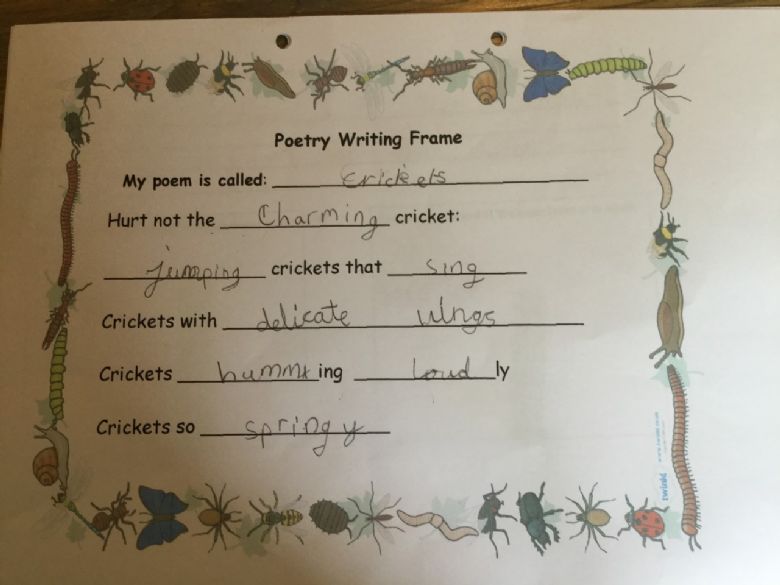 Poetry Writing Frame
My poem is called: crickets
Hurt not the Charming cricket:
jumping crickets that sing
Crickets with delicate wings
Crickets humming loudly
Crickets so springy
twinkl